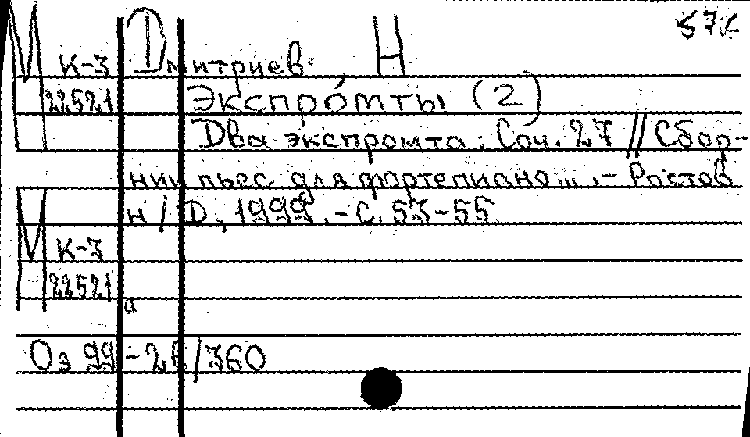 57г
М К-3 Дмитриев Н
22521 Экспро́мты (2)
Два экспромта. Соч. 27 // Сбор-
ник пьес для фортепиано... - Ростов
н/Д, 1999. - С. 53-55
М К-3
22521
Оз 99-2к/360